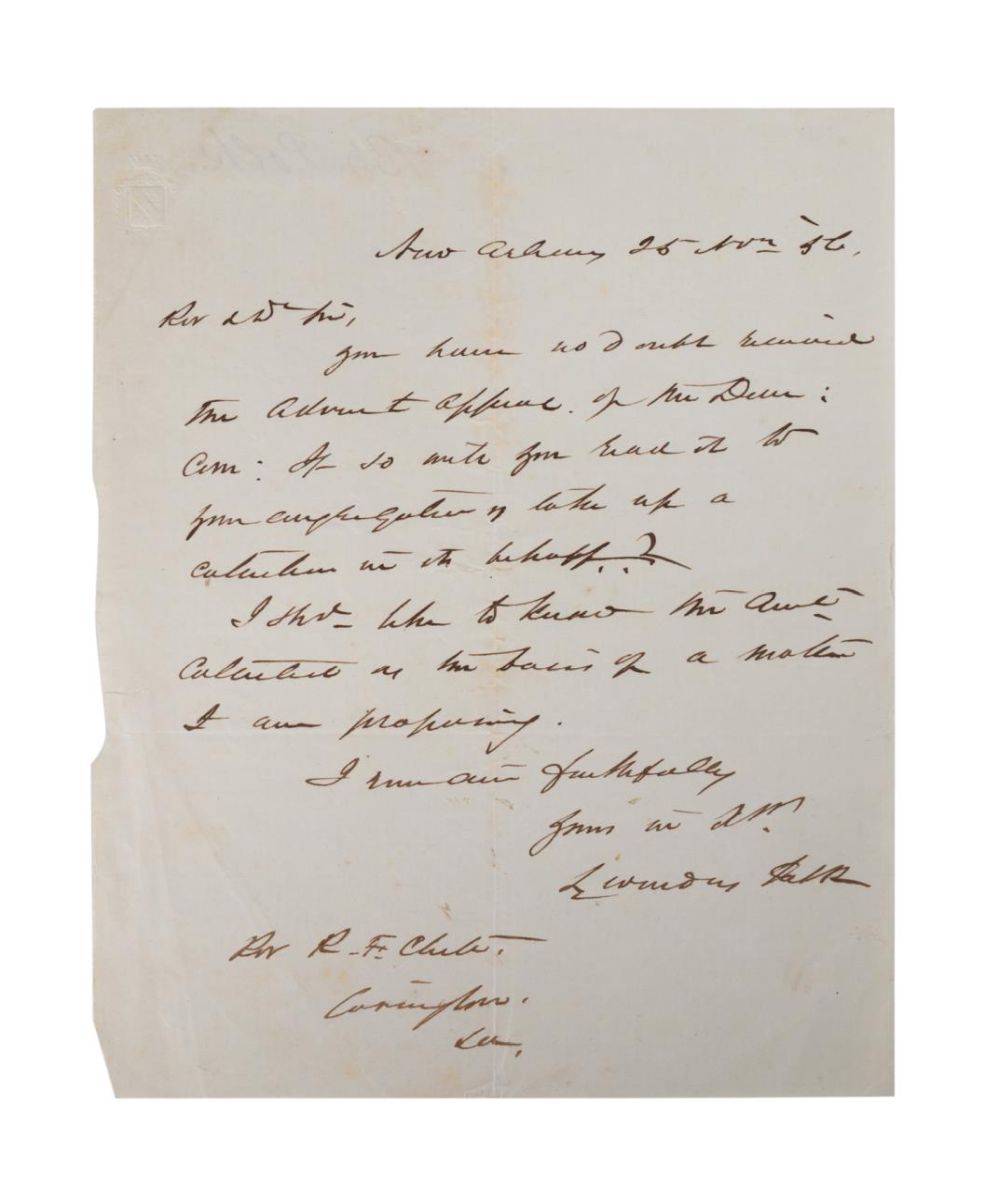 New Orleans 25 Novr '56.
Rev & Dr Sir,
You have no doubt received
the Advent Appeal of the Dom:
Com: If so will you read it to
your congregation & take up a
collection in its behalf..?
I shd like to know the Amt
collected as the basis of a motion
I am proposing.
I remain faithfully
Yours in
Leonidas Polk
Rev R. F. Clute.
Covington.
La,